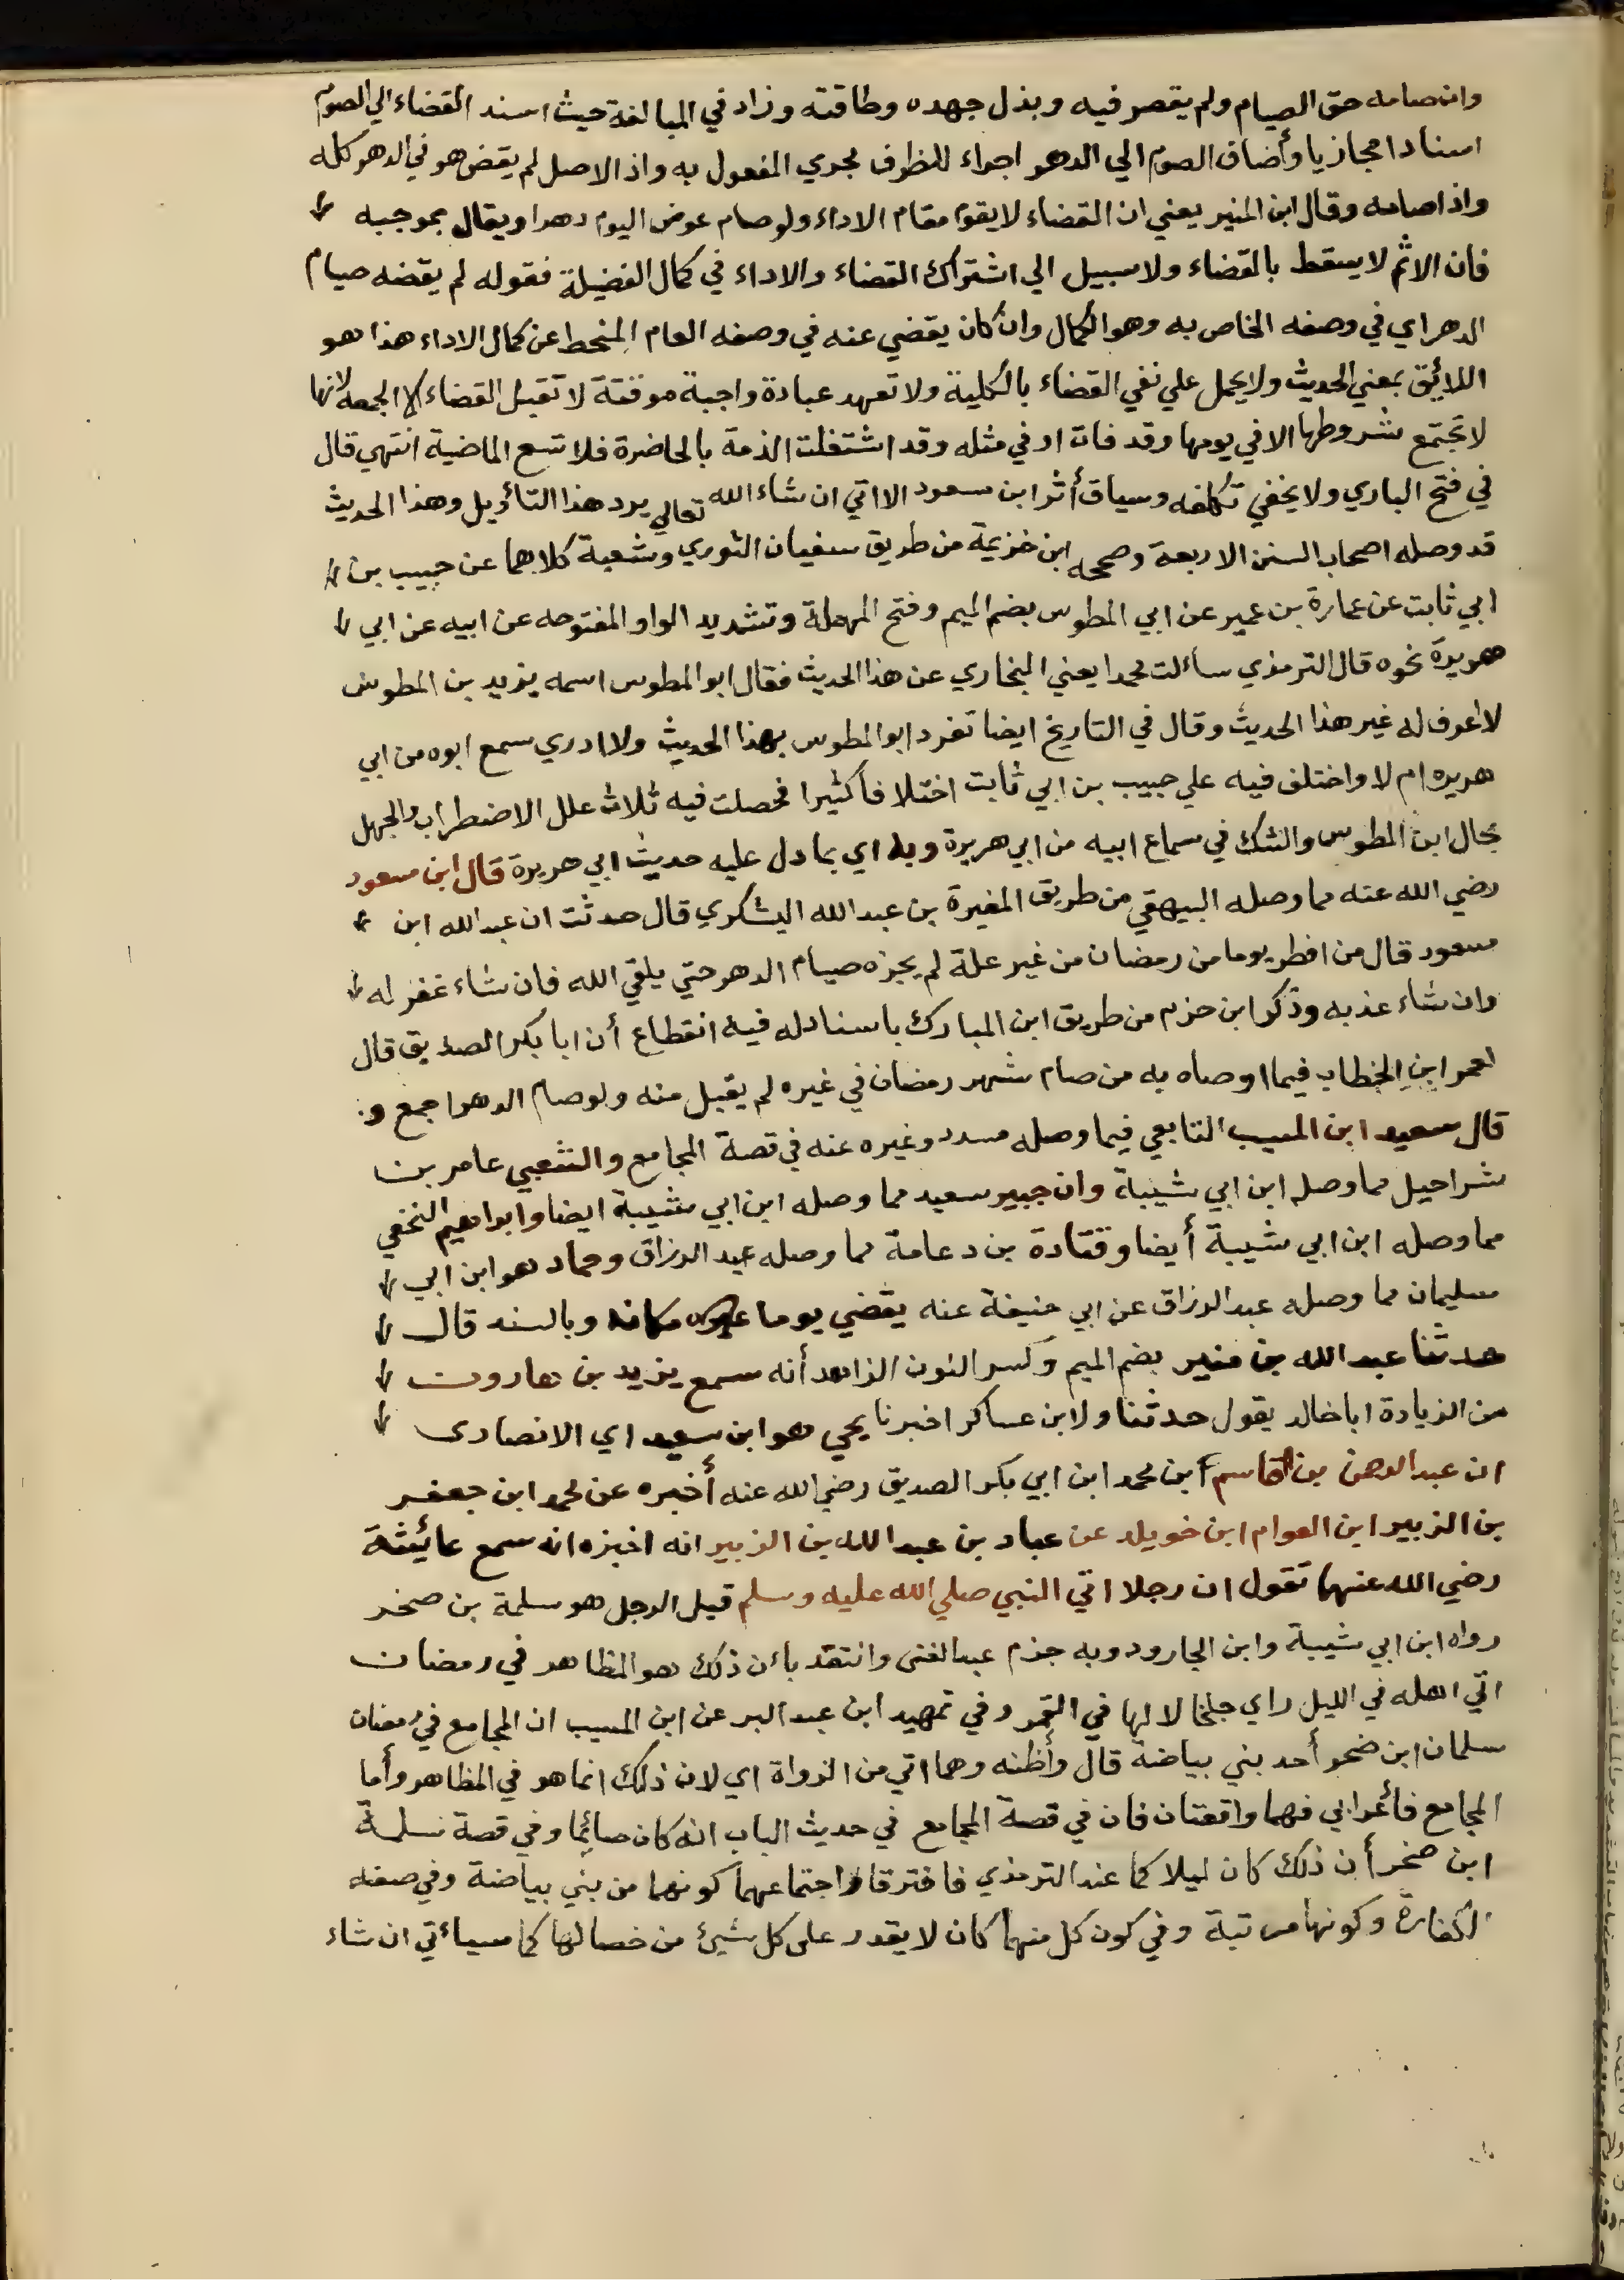 وان صامه حق الصيام ولم يقصر فيه وبذل جهده وطاقته وزاد في المبالغة حيث اسند القضاء الي الصوم
اسنادا مجازيا وأضاف الصوم الي الدهر اجراء للظرف مجري المفعول به واذ الاصل لم يقض هو في الدهر كله
واذا صامه وقال ابن المنير يعني ان القضاء لا يقوم مقام الاداء ولو صام عوض اليوم دهرا ويقال بموجبه
فان الاثم لا يسقط بالقضاء ولا سبيل الي اشتراك القضاء والاداء في كمال الفضيلة فقوله لم يقضه صيام
الدهر اي في وصفه الخاص به وهو الكمال وان كان يقضي عنه في وصفه العام المنحط عن كمال الاداء هذا هو
اللائق بمعني الحديث ولا يحمل علي نفي القضاء بالكلية ولا تعهد عبادة واجبة موقتة لا تقبل القضاء الا الجمعه لانها
لا تجتمع شروطها الا في يومها وقد فات او في مثله وقد اشتغلت الذمة بالحاضرة فلا تسع الماضية انتهي قال
في فتح الباري ولا يخفي تكلفه وسياق أثر ابن سعود الا اتي ان شاء الله تعالي يرد هذا التأويل وهذا الحديث
قد وصله اصحاب السنن الاربعة وصححه ابن خزيمة من طريق سفيان الثوري وشعبة كلاهما عن حبيب بن
ابي ثابت عن عمارة بن عمير عن ابي المطوس بضم الميم وفتح المهملة وتشديد الواو المفتوحه عن ابيه عن ابي
هريرة نحوه قال الترمذي سالت محمدا يعني البخاري عن هذا الحديث فقال ابو المطوس اسمه يزيد بن المطوس
لا اعرف له غير هذا الحديث وقال في التاريخ ايضا تفرد ابو المطوس بهذا الحديث ولا ادري سمع ابوه من ابي
هريره ام لا واختلف فيه علي حبيب بن ابي ثابت اختلافا كثيرا فحصلت فيه ثلاث علل الاضطراب والجهل
بحال ابن المطوس والشك في سماع ابيه من ابي هريرة وبه اي بما دل عليه حديث ابي هريرة قال ابن مسعود
رضي الله عنه مما وصله البيهقي من طريق المغيرة بن عبد الله اليشكري قال حدثت ان عبد الله ابن
مسعود قال من افطر يوما من رمضان من غير علة لم يجزه صيام الدهر حتي يلقي الله فان شاء غفر له
وان شاء عذبه وذكر ابن حزم من طريق ابن المبارك باسناد له فيه انقطاع أن ابا بكر الصديق قال
لعمر ابن الخطاب فيما اوصاه به من صام شهر رمضان في غيره لم يقبل منه ولو صام الدهر اجمع و
قال سعيد ابن المسيب التابعي فيما وصله مسدد وغيره عنه في قصة المجامع والشعبي عامر بن
شراحيل مما وصله ابن ابي شيبة وان جبير سعيد مما وصله ابن ابي شيبة ايضا وابراهيم النخعي
مما وصله ابن ابي شيبة أيضا وقتادة بن دعامة مما وصله عبد الرزاق وحماد هو ابن ابي
سليمان مما وصله عبد الرزاق عن ابي حنيفة عنه يقضي يوما مكانه وبالسند قال
حدثنا عبد الله بن منير بضم الميم وكسر النون الزاهد أنه سمع يزيد بن هارون
من الزيادة ابا خالد يقول حدثنا ولابن عساكر اخبرنا يحي هو ابن سعيد اي الانصارى
ان عبد الرحمن بن القاسم ابن محمد ابن ابي بكر الصديق رضي الله عنه أخبره عن محمد ابن جعفر
بن الزبير ابن العوام ابن خويلد عن عباد بن عبد الله بن الزبير انه اخبره انه سمع عائشة
رضي الله عنها تقول ان رجلا اتي النبي صلي الله عليه وسلم قيل الرجل هو سلمة بن صخر
رواه ابن ابي شيبة وابن الجارود وبه جزم عبد الغنى وانتقد بان ذلك هو المظاهر في رمضان
اتي اهله في الليل راي خلخالا لها في القمر وفي تمهيد ابن عبد البر عن ابن المسيب ان المجامع في رمضان
سلمان ابن صخر أحد بني بياضة قال وأظنه وهما اتي من الرواة اي لان ذلك انما هو في المظاهر وأما
المجامع فأعرابي فهما واقعتان فان في قصة المجامع في حديث الباب انه كان صائما وفي قصة سلمة
ابن صخر أن ذلك كان ليلا كما عند الترمذي فافترقا واجتماعهما كونهما من بني بياضة وفي صفه
الكفارة وكونها مرتبة وفي كون كل منهما كان لا يقدر على كل شيئ من خصالها كما سياتي ان شاء